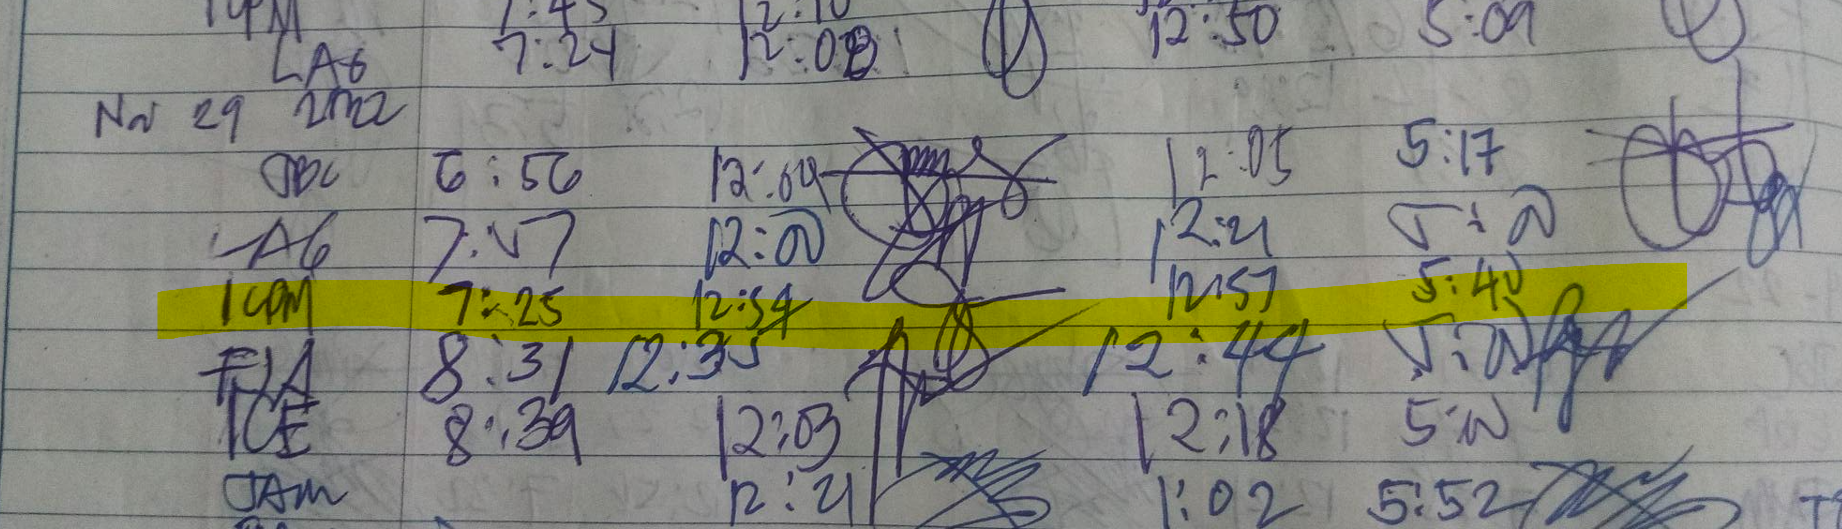 7:45 12:10 12:50 5:09
LAG 7:24 12:02
Nov 29 2022
JDC 6:56 12:04 12:05 5:17
LAG 7:57 12:00 12:21 5:00
7:25 12:54 12:57 5:40
FJA 8:31 12:35 12:44 5:00
ICE 8:39 12:03 12:18 5:00
JAM 12:21 1:02 5:52